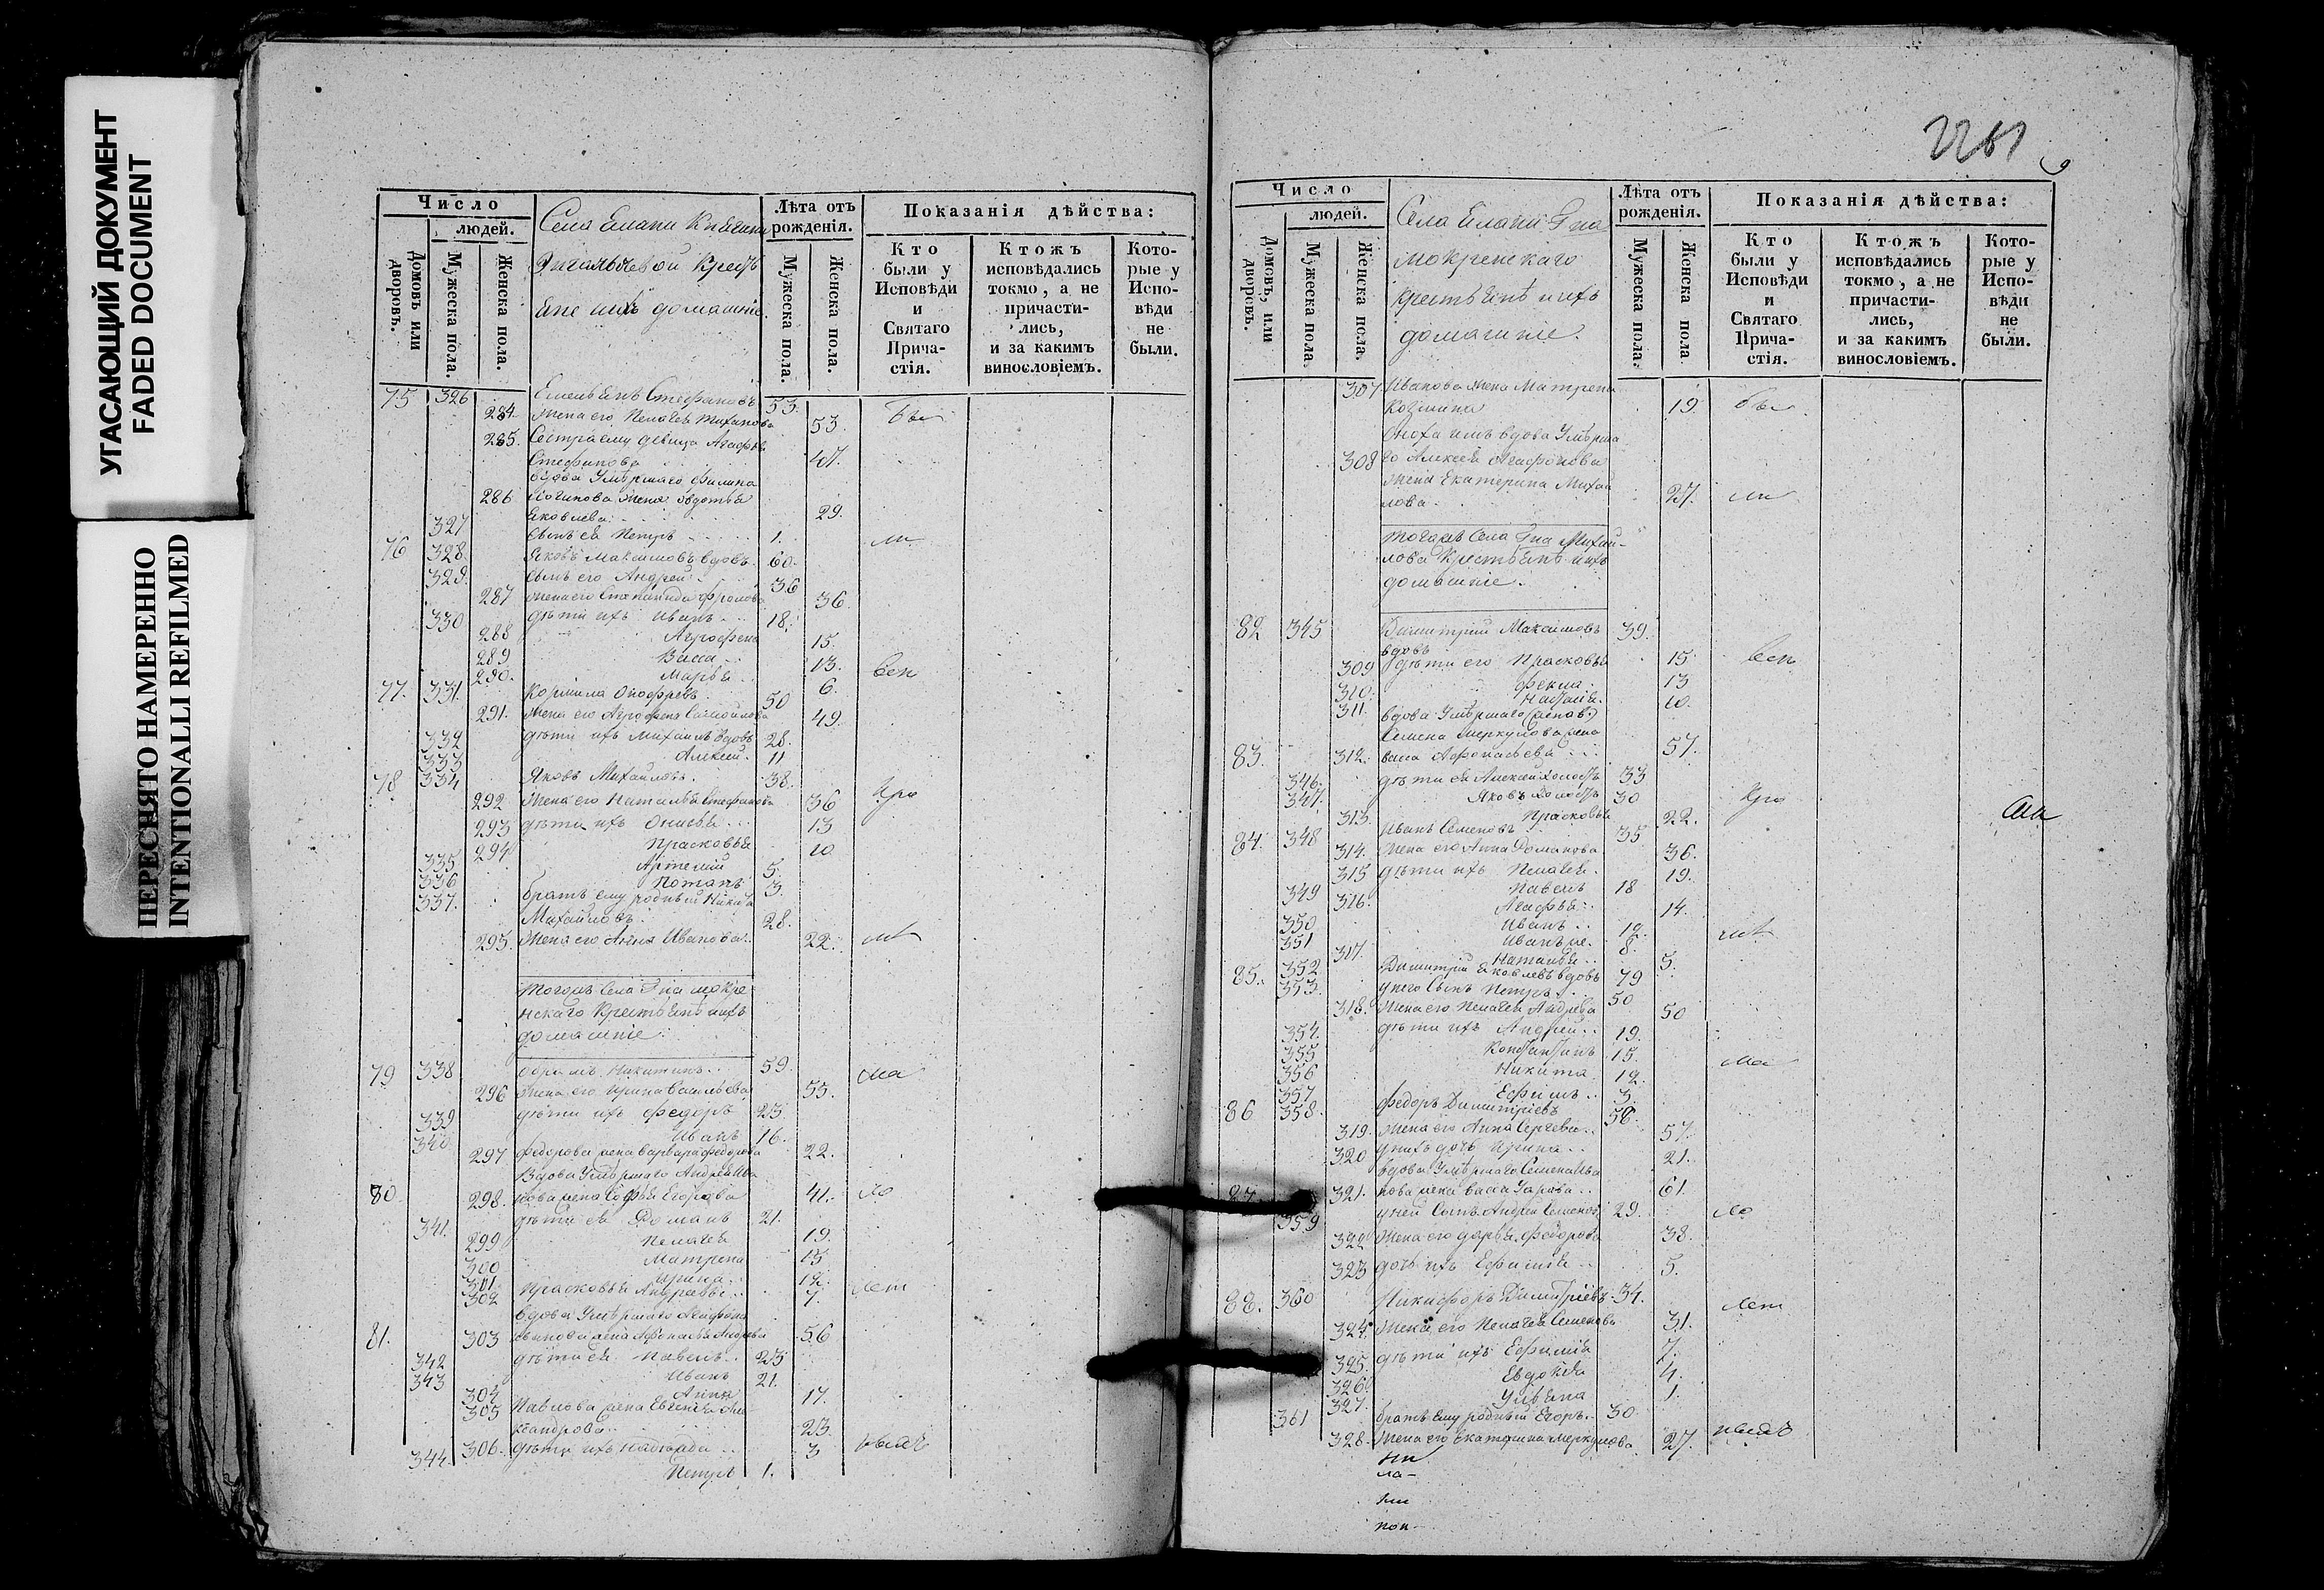 УГАСАЮЩИЙ ДОКУМЕНТ
FADED DOCUMENT
ПЕРЕСНЯТО НАМЕРЕННО
INTENTIONALLI REFILMED
Число
людей.
Домовъ или дворовъ.
Мужеска пола.
Женска пола.
Села Елани Княгини
Крестъ
яне ихъ домашніе.
Лѣта отъ рожденія.
Мужеска пола.
Женска пола.
Показанія дѣйства:
Кто были у Исповѣди и Святаго Прича-стія.
Ктожъ исповѣдались токмо, а не причасти-лись, и за какимъ винословіемъ.
Кото-рые у Испо-вѣди не были.
75 326 Емельянъ Стефановъ 53.
284. Жена его Пелагея 53. бы
285. Сестра ему девица Агафья
Стефанова 47.
вдова Умѣршаго Филипа
286 Логинова жена Авдотья
Яковлева 29.
327 Сынъ ея Петръ 1. ли
76 328 Яковъ Максимовъ вдовъ 60.
329. Сынъ его Андрей 36
287 Жена его Степанида Фролова 36.
330 дѣти ихъ Иванъ 18.
288 Агрофена 15.
289 Васса 13. всп
290. Марья 6.
77. 331. Корнила Онофреевъ 50
291. Жена его Агрофена Самойлова 49.
332 дѣти ихъ Михаилъ вдовъ 28.
333 Алексей. 11
78 334 Яковъ Михайловъ. 38.
292 Жена его Наталья Стефанова 36
293 дѣти ихъ Онисья 13
294 Прасковья 10.
335 Артемий 5.
336 Потапъ 3.
337. братъ ему родный Никита
Михайловъ. 28.
295. Жена его Анна Иванова 22.
Тогожъ Села Гна Мокре
нскаго Крестьянѣ ихъ
домашніе.
79 338 Абрамъ Никитинъ 59. ма
296 Жена его Ирина Васильева 55.
339 дѣти ихъ Федоръ 25
340 Иванъ 16.
297 Федорова жена Варвара Федорова 22.
Вдова Умѣршаго Андрея Ива
80. 298. нова жена Софья Егорова 41. ло
341. дѣти ея Романъ 21.
299 Пелагея 19.
300 Матрена 15
301. Ирина 12.
302 Прасковья 7. лет
вдова Умѣршаго Агафона
81. 303 56
342 дѣти ея Павелъ 25
343 Иванъ 21.
304 Анна 17.
305 Павлова жена Евгенія Але
ксандрова 23
306. дѣти ихъ Надежда 3
344. Петръ 1.
Число
людей.
Домовъ, или дворовъ.
Мужеска пола.
Женска пола.
Села Елани Гна
Мокренскаго
Крестьянѣ ихъ
домашніе.
Лѣта отъ рожденія.
Мужеска пола.
Женска пола
Показанія дѣйства:
Кто были у Исповѣди и Святаго Прича-стія.
Ктожъ исповѣдались токмо, а не причасти-лись, и за какимъ винословіемъ.
Кото-рые у Испо-вѣди не были.
307 Иванова жена Матрена
Козмина 19. бы
Сноха имъ вдова Умѣрша
308 го Алексея Агафонова
жена Екатерина Михай
лова 27. ли
Тогожъ Села Гна Михай-
лова Крестьянѣ ихъ
домашніе.
82 345 Димитрій Максимовъ 39.
вдовъ
309 дѣти его Прасковья 15 всп
310. Фекла 13
311. Наталья. 10.
вдова Умѣршаго
Семена Меркулова жена
83. 312. Васса Афонасьева 57.
346. дѣти ея Алексей холостъ 33
347. Яковъ холостъ 30
313. Прасковья 22.
84. 348 Иванъ Семеновъ 35
314. Жена его Анна Романова 36.
315 дѣти ихъ Пелагея. 19.
349 Павелъ 18
316. Агафья 14.
350 Иванъ 12.
351 Иванъ же. 8.
317. Наталья 5.
85. 352 Димитрій Яковлевъ вдовъ 79
353. у него Сынъ Петръ 50
318. Жена его Пелагея 50
354. дѣти ихъ Андрей 19.
355 Константинъ 15.
356 Никита 12. ма
357 Ефимъ 3.
86 358. Федоръ Димитріевъ 58.
319. Жена его Анна Сергеева 57.
320 у нихъ дочь Ирина 21.
вдова Умѣршаго Семена Ива
87. 321. нова жена Васса 61.
359 у ней Сынъ Андрей Семеновъ 29. ло
322 Жена его Дарья Федорова 38.
323 дочь ихъ Ефимія 5.
88. 360 Никифоръ Димитріевъ 34. лет
324. Жена его Пелагея Семенова 31.
325. дѣти ихъ Ефимія 7.
326. Евдокия 4.
327. Ульяна 1.
361 братъ ему родный Егоръ 30
328. Жена его Екатерина Меркулова 27.